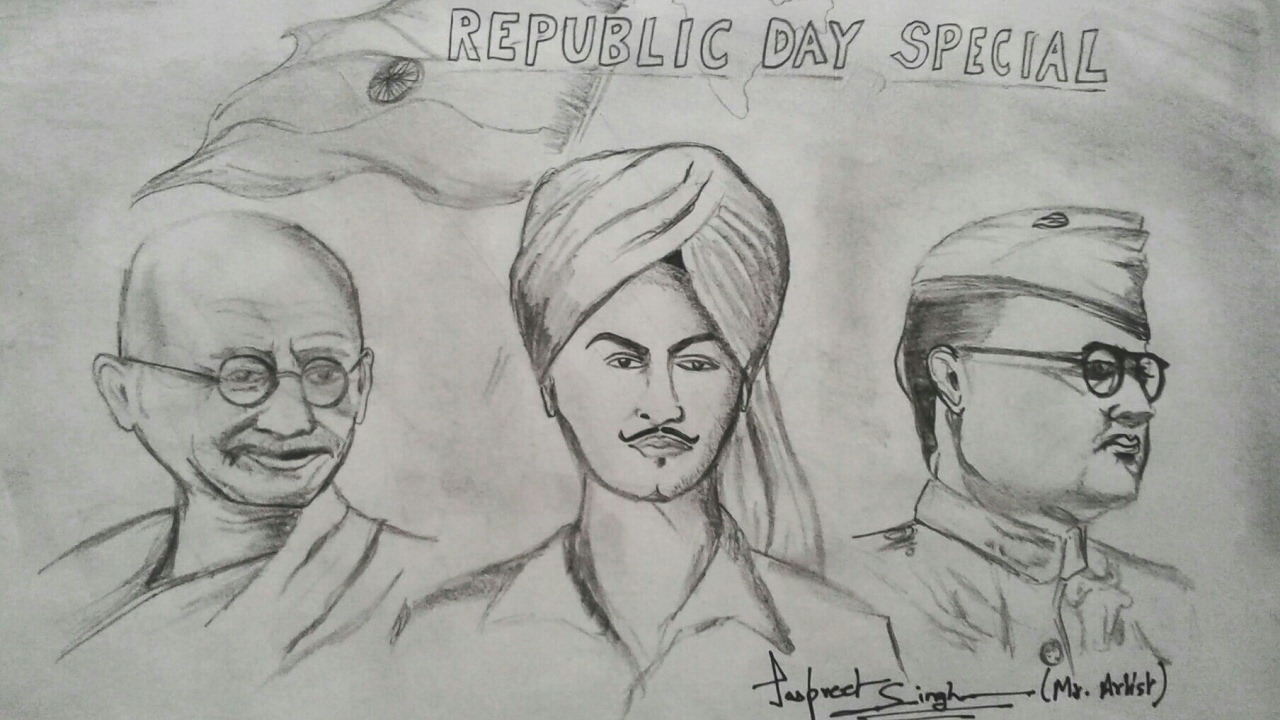 REPUBLIC DAY SPECIAL
Jaspreet Singh (Mr. Artist)